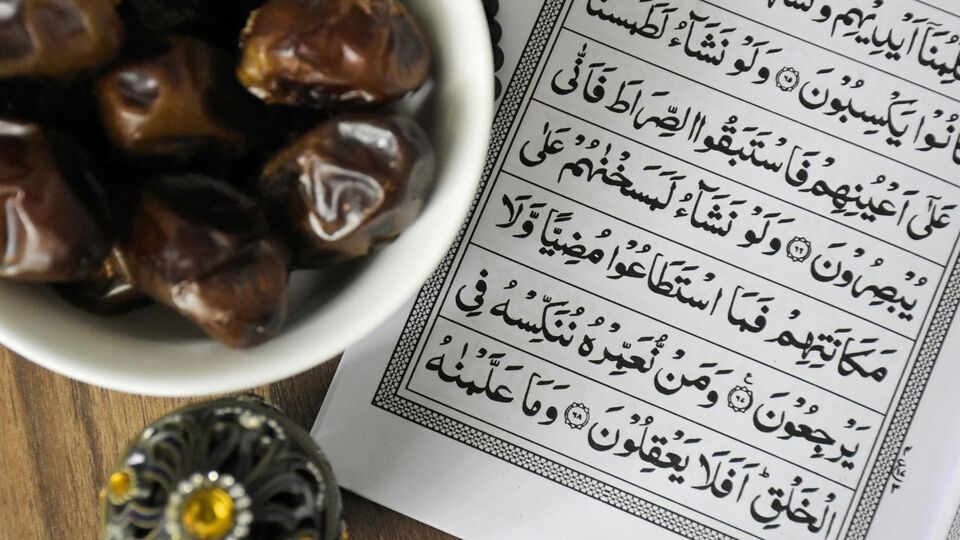 اَيْدِيْهِمْ
كَانُوْا يَكْسِبُوْنَ ۝٦٥ وَلَوْ نَشَآءُ لَطَمَسْنَا
عَلٰٓى اَعْيُنِهِمْ فَاسْتَبَقُوا الصِّرَاطَ فَاَنّٰى
يُبْصِرُوْنَ ۝٦٦ وَلَوْ نَشَآءُ لَمَسَخْنٰهُمْ عَلٰى
مَكَانَتِهِمْ فَمَا اسْتَطَاعُوْا مُضِيًّا وَّلَا
يَرْجِعُوْنَ ۝٦٧ وَمَنْ نُّعَمِّرْهُ نُنَكِّسْهُ فِى
الْخَلْقِ ؕ اَفَلَا يَعْقِلُوْنَ ۝٦٨ وَمَا عَلَّمْنٰهُ